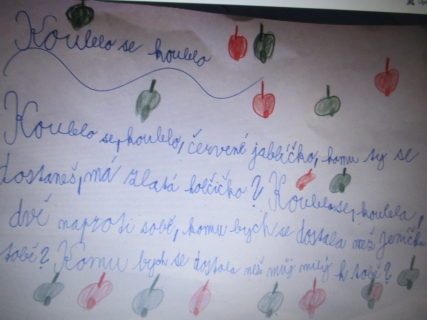 Koulelo se koulelo
Koulelo se, koulelo, červené jablíčko, komu ty se
dostaneš, má zlatá holčičko? Koulela se, koulela,
dvě naproti sobě, komu bych se dostala než Jeníčku
tobě? Komu bych se dostala než můj milý k tobě?